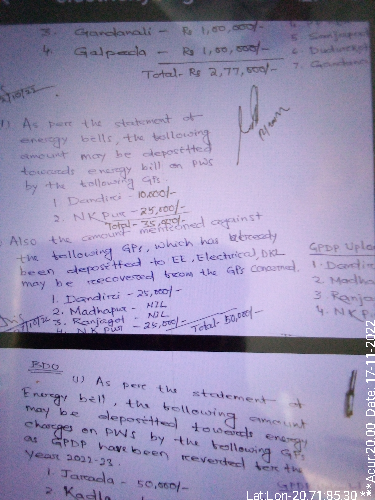 3. Gandanali - Rs 1,00,000/-
4. Galpeda - Rs 1,00,000/-
Total- Rs 2,77,000/-
1) As per the statement of
energy bells, the following
amount may be deposited
towards energy bill on PWS
by the following GPs.
1. Dandiri - 10,000/-
2. NK Pur - 25,000/-
Total- 35,000/-
Also the amount mentioned against
the following GPs, which has already
been deposited to EL, Electrical, DKL
may be recovered from the GPs concerned.
1. Dandiri - 25,000/-
2. Madhapur - NIL
3. Ranjagol - NIL
4. NK Pur - 25,000/-
Total- 50,000/-
GPDP Uplo
1. Dandir
2. Madha
3. Ranja
4. N.K.P
BDO
(1) As per the statement of
Energy bell, the following amount
may be deposited towards energy
charges on PWS by the following GPs
as GPDP have been reverted for the
year 2022-23.
1. Jarada - 50,000/-
2. Kadla
Lat:Lon-20.71:85.30
***Acur:20.00 Date, 17-11-2022